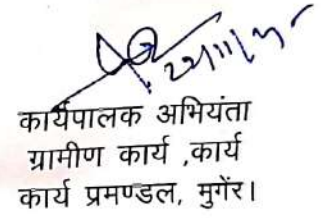 22/11/25
कार्यपालक अभियंता
ग्रामीण कार्य ,कार्य
कार्य प्रमण्डल, मुगेंर।